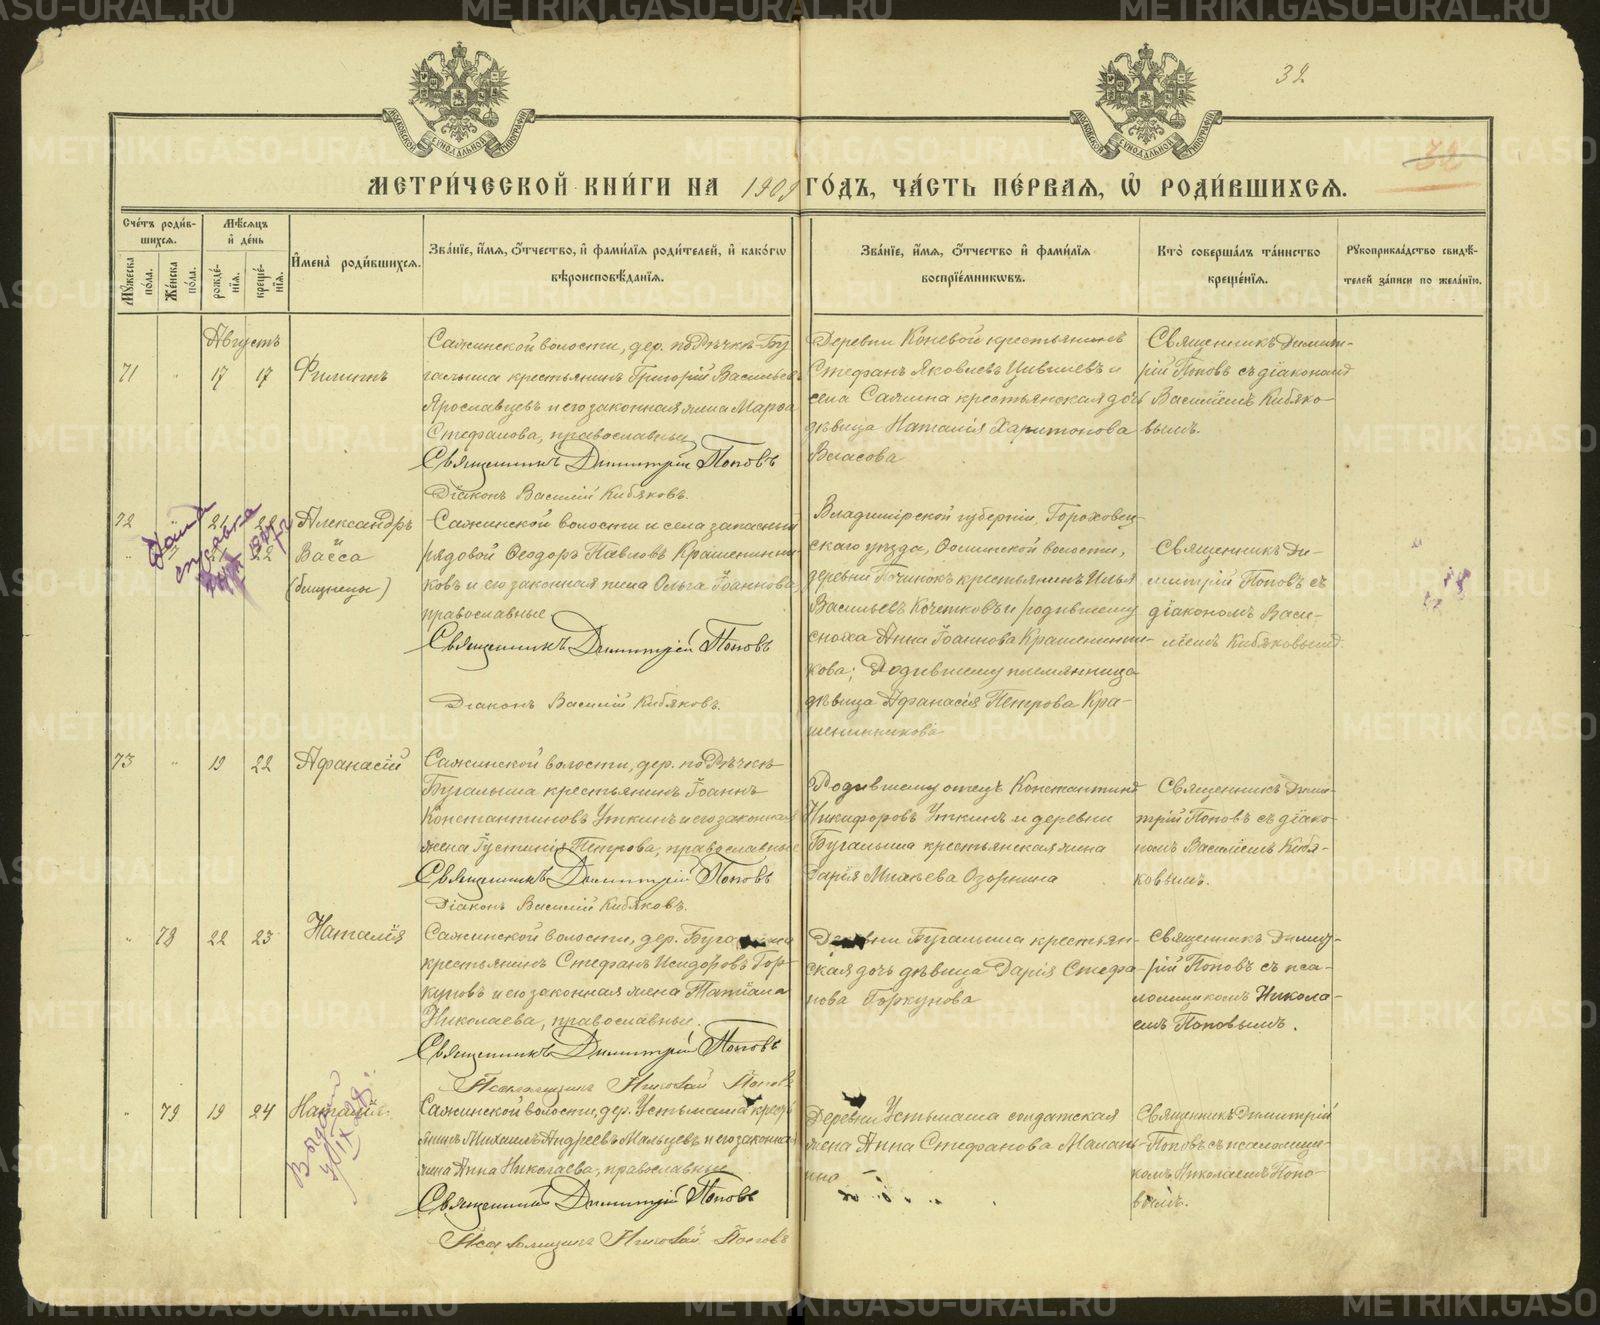 32
МОСКОВСКОЙ СѴНОДАЛЬНОЙ ТИПОГРАФІИ
МОСКОВСКОЙ СѴНОДАЛЬНОЙ ТИПОГРАФІИ
32
МЕТРИ́ЧЕСКОЙ КНИ́ГИ НА 1909 ГО́ДЪ, ЧА́СТЬ ПЕ́РВАѦ, Ѡ҆ РОДИ́ВШИХСѦ.
Сче́тъ роди́в-
шихсѧ.
Мꙋ́жеска по́ла.
Же́нска по́ла.
Мѣ́сѧцъ
и҆ де́нь
рожде́-
нїѧ.
креще́-
нїѧ.
И҆мена̀ роди́вшихсѧ.
Зва́нїе, и҆́мѧ, ѻ҆́тчество, и҆ фами́лїѧ роди́телей, и҆ како́гѡ
вѣроисповѣ́данїѧ.
Зва́нїе, и҆́мѧ, ѻ҆́тчество и҆ фами́лїѧ
воспрїе́мникѡвъ.
Кто̀ соверша́лъ та́инство
креще́нїѧ.
Рꙋкоприкла́дство свидѣ́-
телей за́писи по жела́нїю.
Августъ
71 " 17 17 Филиппъ
Сажинской волости, дер. по Рѣчкѣ Бу
галыша крестьянинъ Григорій Васильевъ
Ярославцевъ и его законная жена Марѳа
Стефанова, православные
Священникъ Димитрій Поповъ
Діаконъ Василій Кибяковъ.
Деревни Коневой крестьянинъ
Стефанъ Яковлевъ и
села Сажина крестьянская дочь
дѣвица Наталія Харитонова
Власова
Священникъ Димит-
рій Поповъ съ діакономъ
Василіемъ Кибяко-
вымъ.
72 21 22 Александръ
и
" 21 22 Васса
(близнецы)
Дана
справка
Сажинской волости и села запасный
рядовой Ѳеодоръ Павловъ Крашенинни
ковъ и его законная жена Ольга Іоаннова,
православные
Священникъ Димитрій Поповъ
Діаконъ Василій Кибяковъ.
Владимірской губерніи, Гороховец-
скаго уѣзда, волости,
деревни Починокъ крестьянинъ Илья
Васильевъ Кочетковъ и родившему
сноха Анна Іоаннова Крашенинни-
кова; Родившему племянница
дѣвица Афанасія Петрова Кра-
шенинникова
Священникъ Ди-
митрій Поповъ съ
діакономъ Васи-
ліемъ Кибяковымъ
73 " 19 22 Афанасій
Сажинской волости, дер. по Рѣчкѣ
Бугалыша крестьянинъ Іоаннъ
Константиновъ Уткинъ и его законная
жена Іустинія Петрова, православные
Священникъ Димитрій Поповъ
Діаконъ Василій Кибяковъ.
Родившему отецъ Константинъ
Никифоровъ Уткинъ и деревни
Бугалыша крестьянская жена
Дарія Озорнина
Священникъ Дими-
трій Поповъ съ діако-
номъ Василіемъ Кибя-
ковымъ.
" 78 22 23 Наталія
Сажинской волости, дер.
крестьянинъ Стефанъ Исидоровъ Гор-
куновъ и его законная жена Татіана
Николаева, православные.
Священникъ Димитрій Поповъ
Псаломщикъ Николай Поповъ
Деревни Бугалыша крестьян-
ская дочь дѣвица Дарія Стефа
нова Горкунова
Священникъ Димит-
рій Поповъ съ пса-
ломщикомъ Никола-
емъ Поповымъ.
" 79 19 24 Наталія
Сажинской волости, дер. Устьмаша крестья
нинъ Михаилъ Андреевъ Мальцевъ и его законная
жена Анна Николаева, православные
Священникъ Димитрій Поповъ
Псаломщикъ Николай Поповъ
Деревни Устьмаша солдатская
жена Анна Стефанова
Священникъ Димитрій
Поповъ съ псаломщи-
комъ Николаемъ Попо-
вымъ.
METRIKI.GASO-URAL.RU